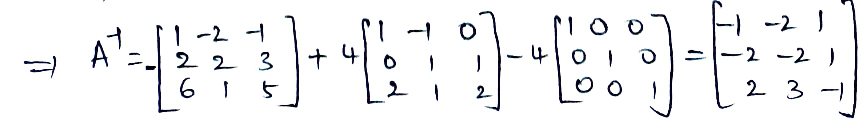 ⇒ A⁻¹ = -[1 -2 -1; 2 2 3; 6 1 5] + 4[1 -1 0; 0 1 1; 2 1 2] - 4[1 0 0; 0 1 0; 0 0 1] = [-1 -2 1; -2 -2 1; 2 3 -1]